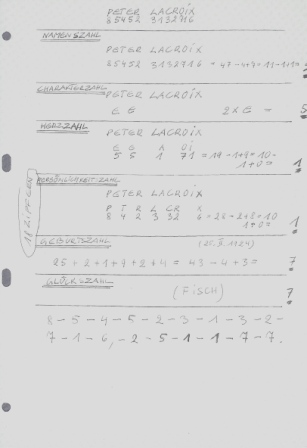 PETER LACROIX
85452 3132716
NAMENSZAHL
PETER LACROIX
85452 3132716 = 47-4+7=11-1+1=
CHARAKTERZAHL
PETER LACROIX
E E 2XE - 5
HERZZAHL
PETER LACROIX
E E A OI
5 5 1 71 = 19-1+9=10-
1+0= 1
PERSÖNLICHKEITSZAHL
PETER LACROIX
P T R L CR X
8 4 2 3 32 6 = 28=2+8=10
1+0= 1
18 ZIFFERN
GEBURTSZAHL (25.II.1924)
25+2+1+9+2+4= 43-4+3= 7
GLÜCKSZAHL
(FISCH) 7
8-5-4-5-2-3-1-3-2-
7-1-6,-2-5-1-1-7-7.